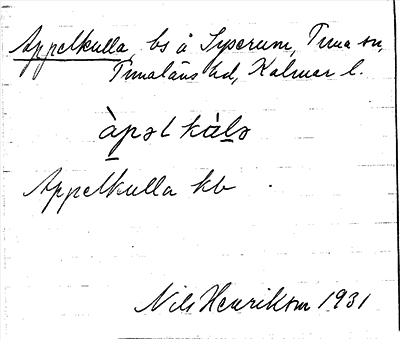 Appelkulla, bs å Syserum, Tuna sn,
Tunaläns hd, Kalmar l.
àpəlkùlə
Appelkulla kb
Nils Henrikson 1931